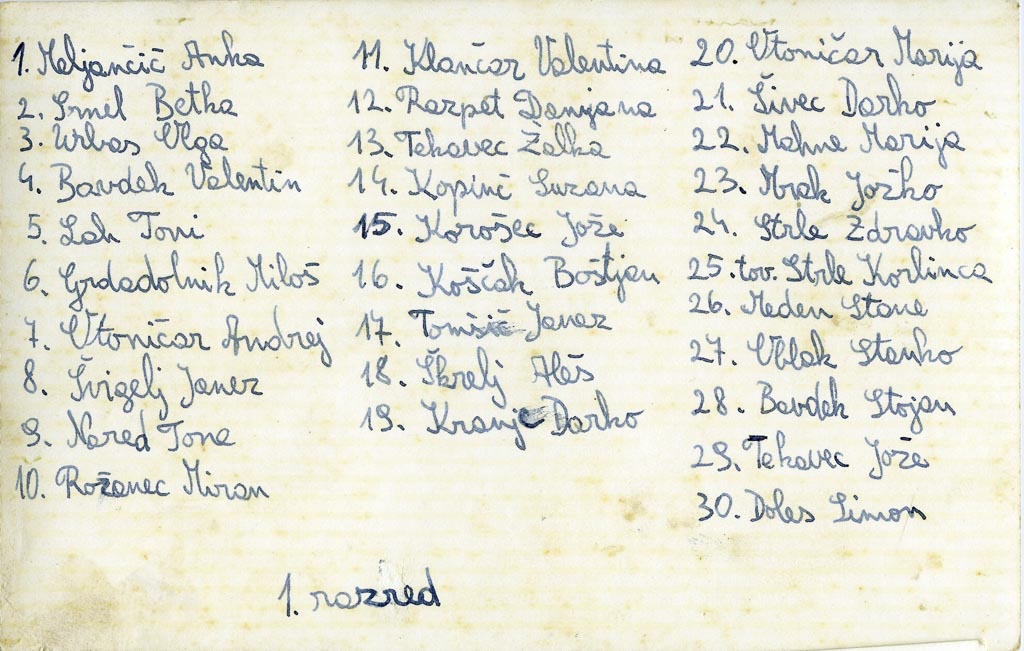 1. Meljančič Anka
2. Srnel Betka
3. Urbas Olga
4. Bavdek Valentin
5. Lah Toni
6. Grdadolnik Miloš
7. Otoničar Andrej
8. Švigelj Janez
9. Nared Tone
10. Rožanec Miran
11. Klančar Valentina
12. Razpet Damjana
13. Tekavec Zalka
14. Kopinč Suzana
15. Korošec Jože
16. Koščak Boštjan
17. Tomšič Janez
18. Škrelj Aleš
19. Kranjc Darko
20. Otoničar Marija
21. Šivec Darko
22. Mahne Marija
23. Mrak Jožko
24. Strle Zdravko
25. tov. Strle Korlinca
26. Meden Stane
27. Oblak Stanko
28. Bavdek Stojan
29. Tekavec Jože
30. Doles Simon
1. razred